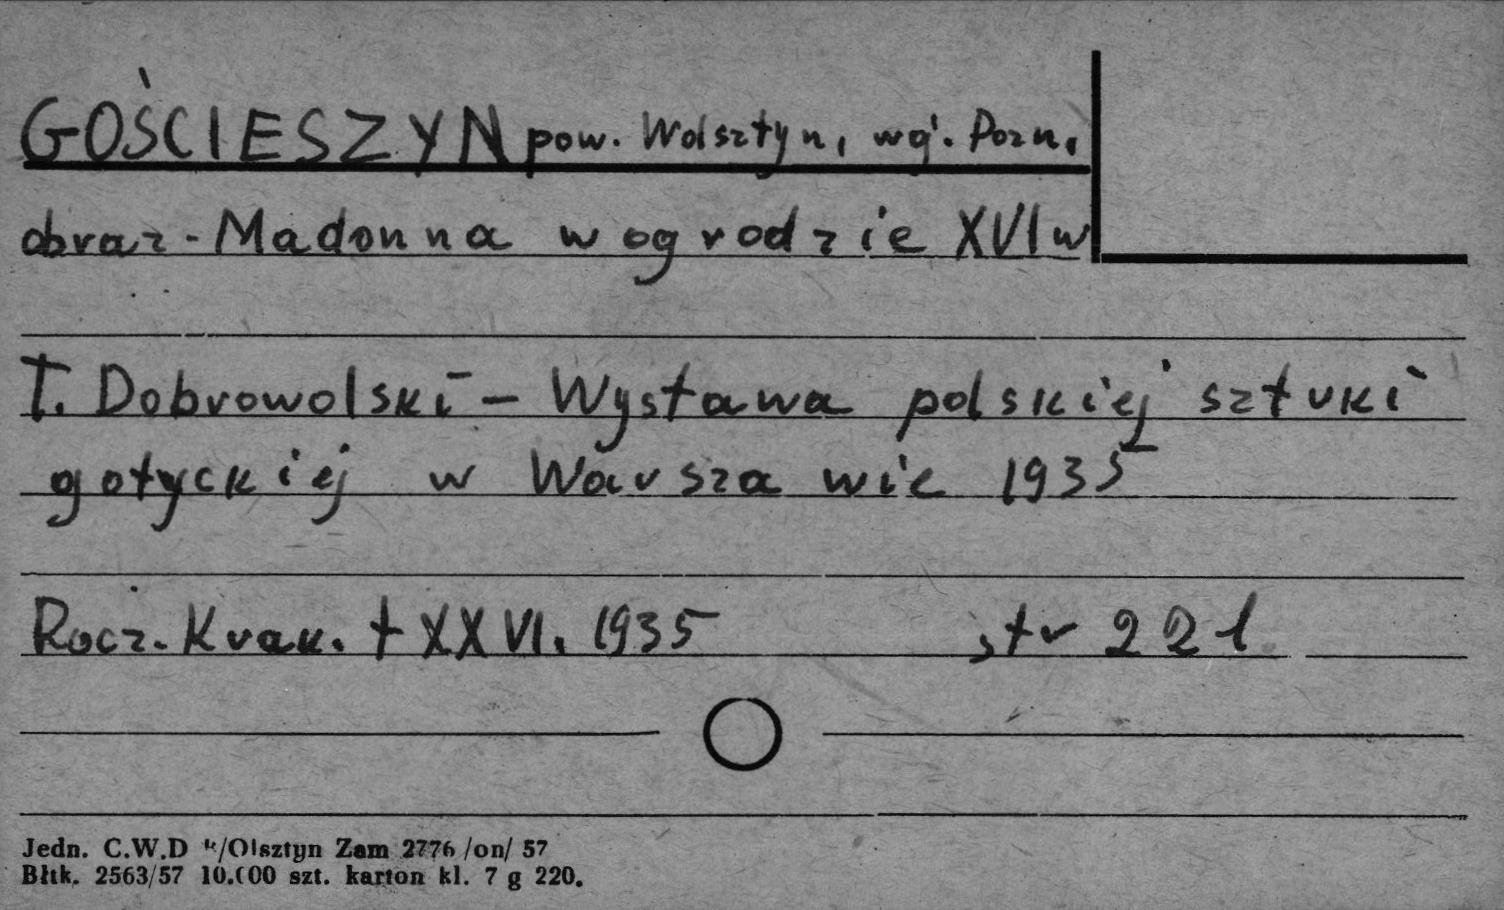 GOŚCIESZYN pow. Wolsztyn, wój. Pozn.
obraz - Madonna w ogrodzie XVI w
T. Dobrowolski - Wystawa polskiej sztuki
gotyckiej w Warszawie 1935
Rocz. Krak. t XXVI. 1935 str 221
Jedn. C.W.D /Olsztyn Zam 2776 /on/ 57
Bltk. 2563/57 10.000 szt. karton kl. 7 g 220.